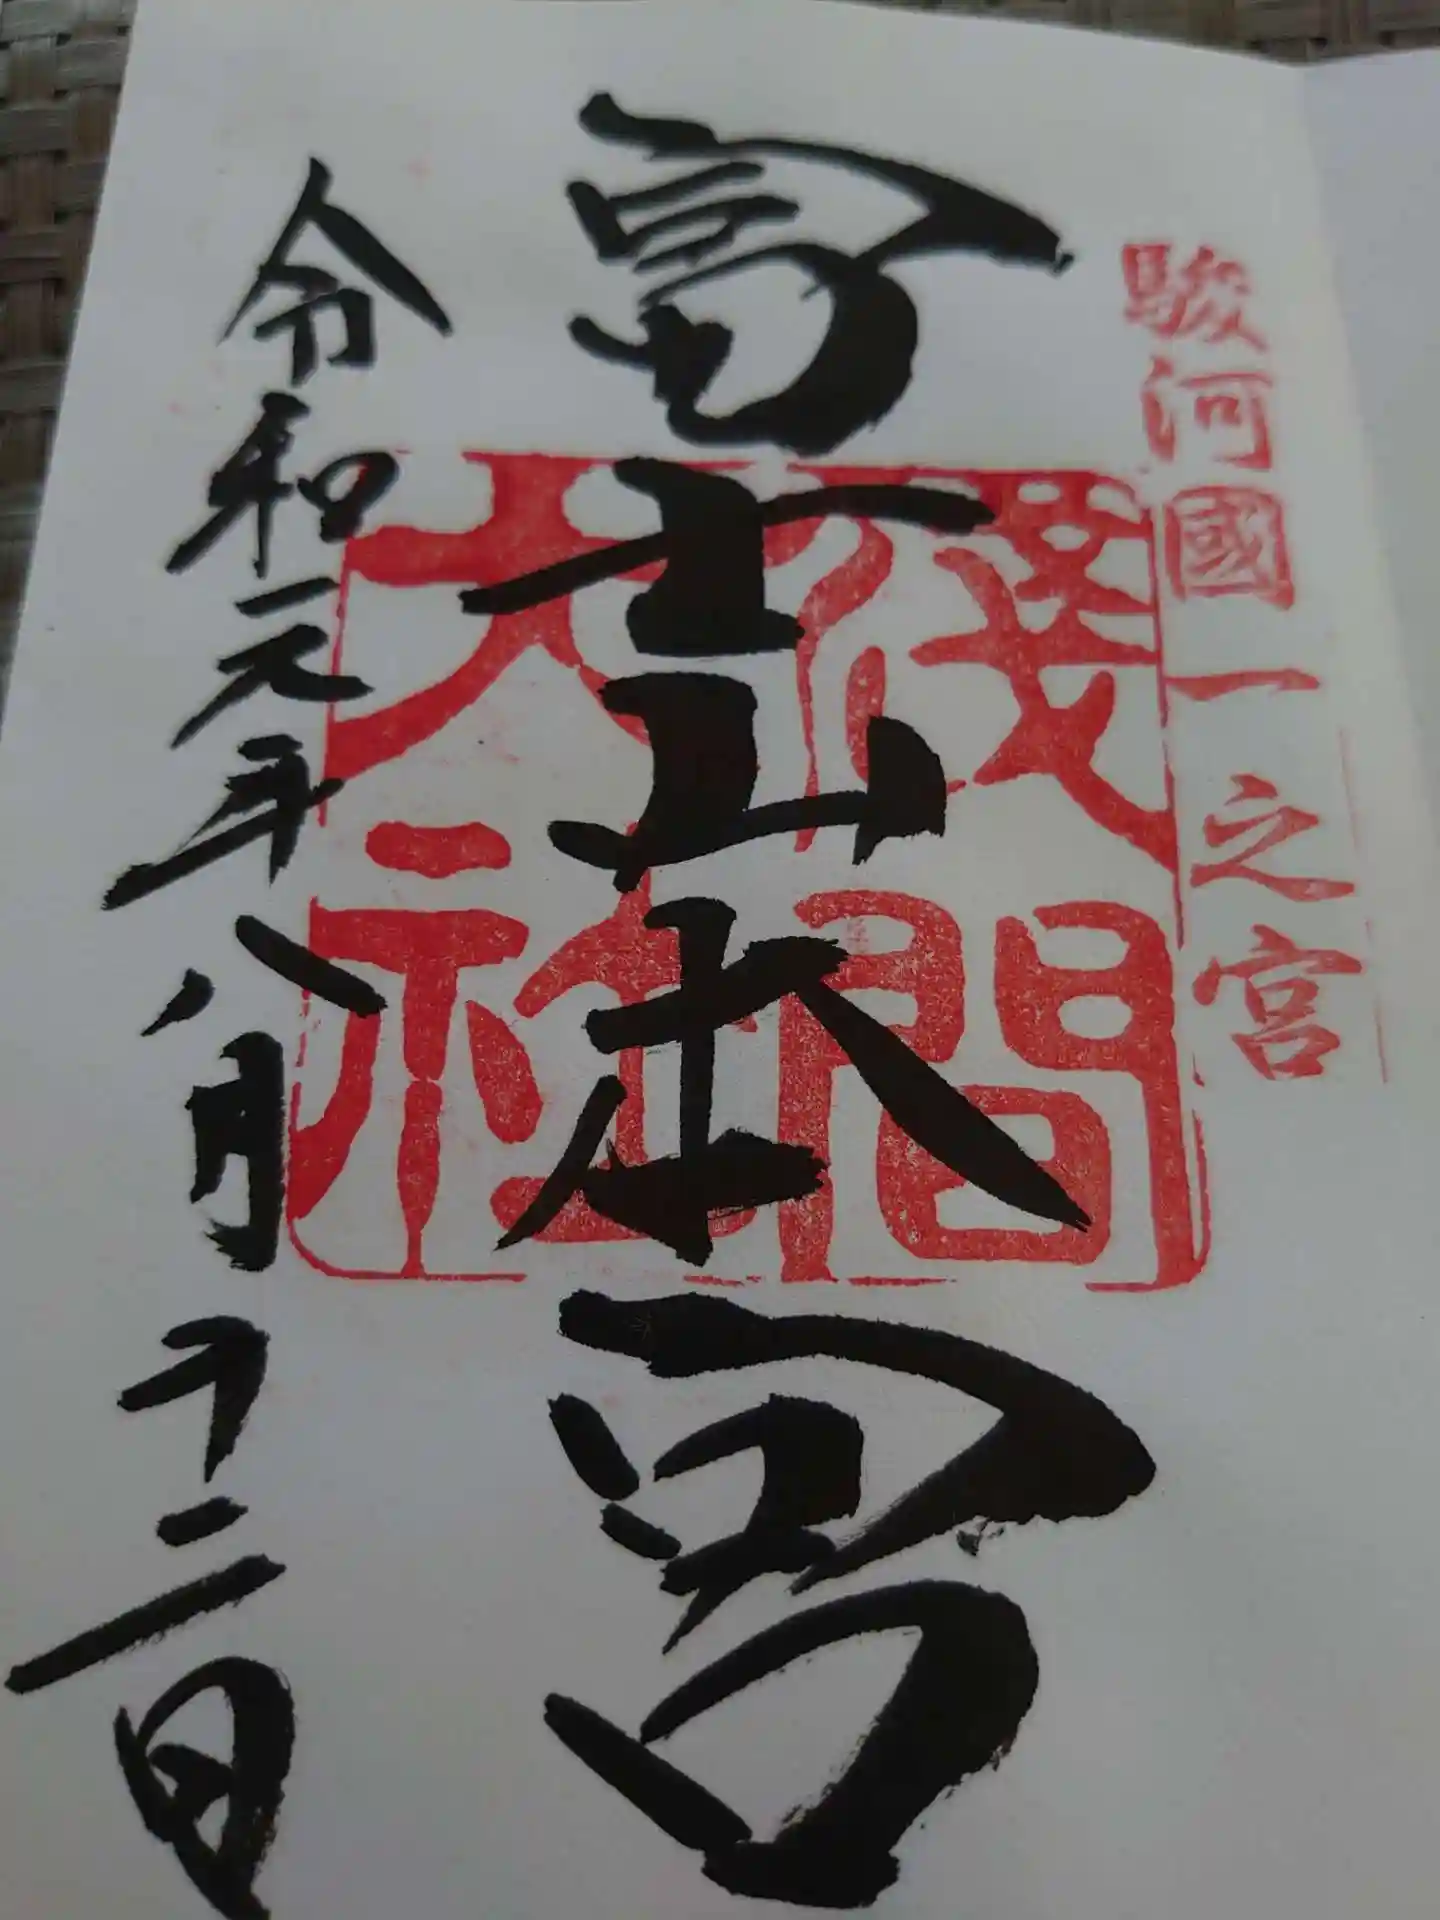 駿河國一之宮
富士山本宮
淺間大社
令和元年八月十二日